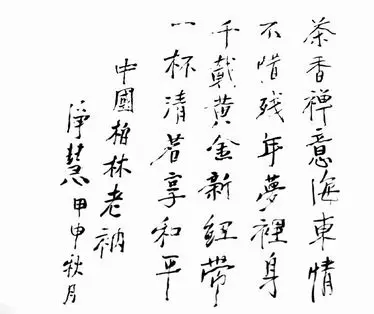 茶香禅意海東情
不惜残年夢裡身
千載黄金新紐帶
一杯清茗享和平
中國柏林老衲
淨慧甲申秋月